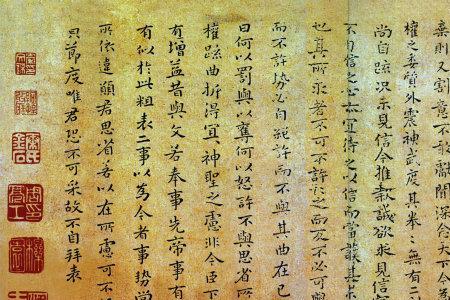 棄則又割意不敢獻聞深念天下今為
權之委質外震神武度其拳々無有二
尚自疏況未見信今推款誠欲求見信
不自信之心亦宜待之以信而當護其
也其所求者不可不許許之而反不必可與
而不許勢必自絕許而不與其曲在己
曰何以罰與以奪何以怒許不與思省所
權疏曲折得宜神聖之慮非今臣下
有增益昔與文若奉事先帝事有
有似於此粗表二事以為今者事勢尚
所依違願君思省若以在所慮可不
具節度唯君恐不可采故不自拜表